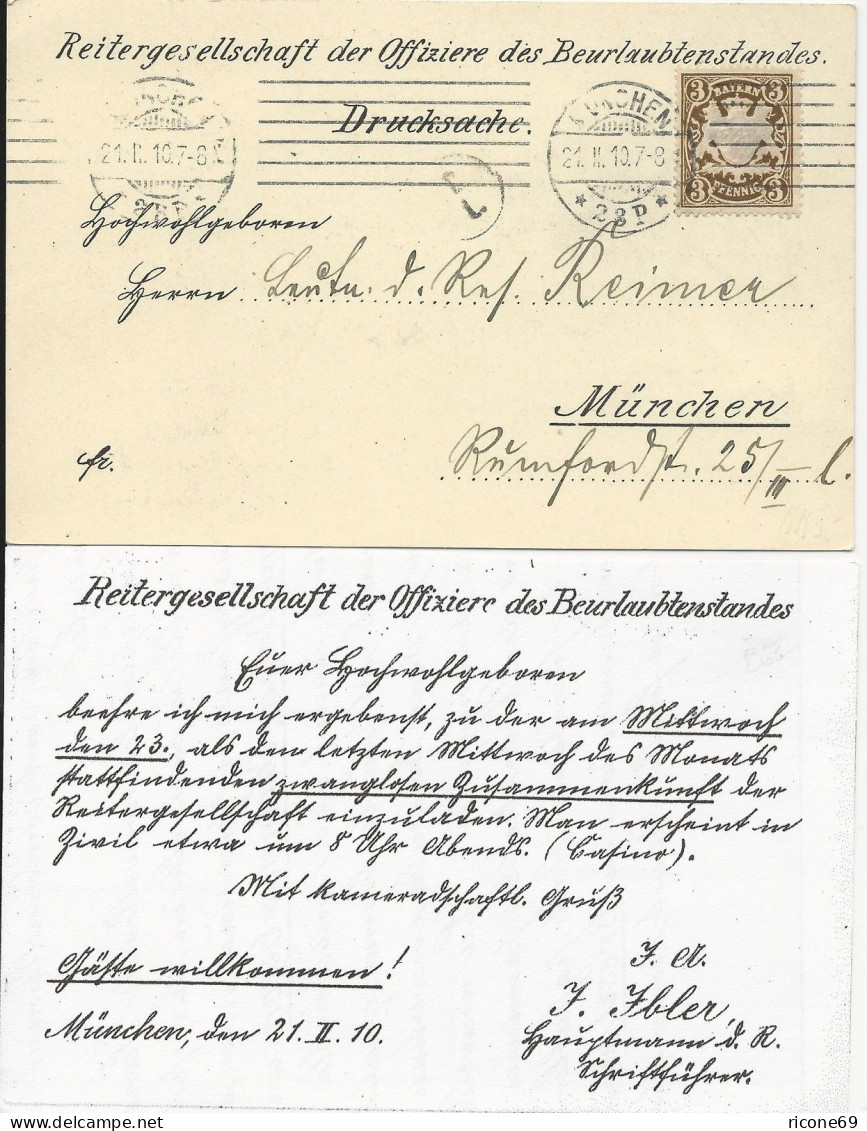 Reitergesellschaft der Offiziere des Beurlaubtenstandes.
Drucksache.
MÜNCHEN
21. II. 10. 7-8
21. II. 10. 7-8
* 2 B P *
3 BAYERN 3
3 PFENNIG 3
Hochwohlgeboren
Herrn Leutn. d. Res. Reimer
München
fr.
Rumfordst. 25/III l.
Reitergesellschaft der Offiziere des Beurlaubtenstandes
Euer Hochwohlgeboren
beehre ich mich ergebenst, zu der am Mittwoch
den 23., als den letzten Mittwoch des Monats
stattfindenden zwanglosen Zusammenkunft der
Reitergesellschaft einzuladen. Man erscheint in
Zivil etwa um 8 Uhr Abends. (Casino).
Mit kameradschaftl. Gruß
Gäste willkommen!
J. A.
J. Ibler,
München, den 21. II. 10.
Hauptmann d. R.
Schriftführer.
ricone69